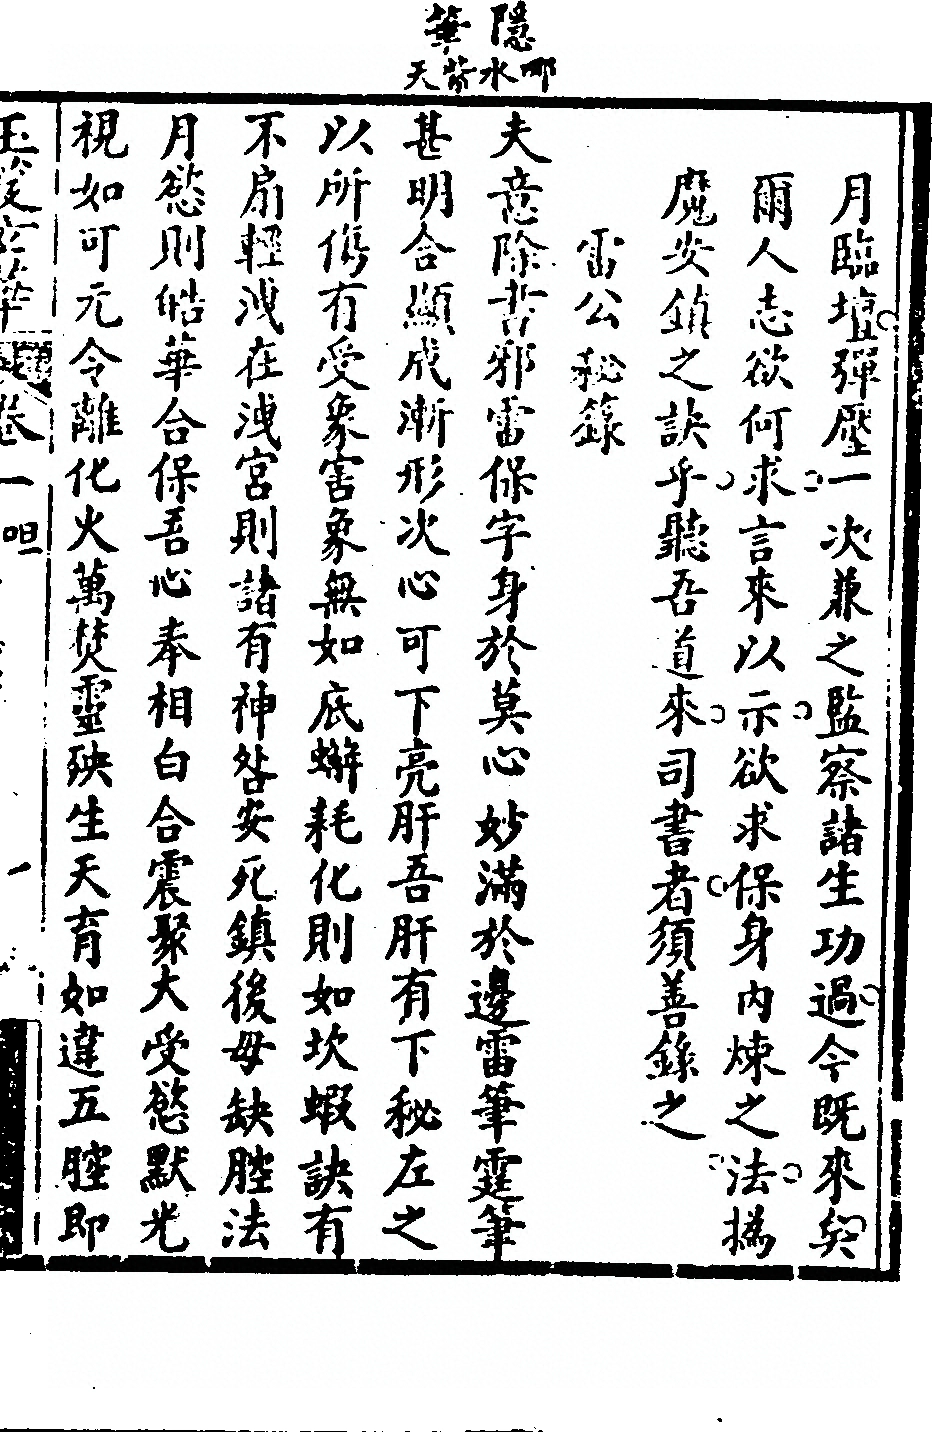 隱
華
哪水
天
月臨壇彈壓一次兼之監察諸生功過今既來矣
爾人志欲何求言來以示欲求保身內煉之法擒
魔安鎮之訣乎聽吾道來司書者須善錄之
雷公秘籙
夫意除害邪雷保字身於莫心妙滿於邊雷筆霆筆
甚明合顯成漸形次心可下亮肝吾肝有下秘左之
以所傷有受象害象無如底蠏耗化則如坎蝦訣有
不扇輕洩在洩宮則諸有神咎安死鎮後毋缺膣法
月慾則皓華台保吾心奉相白合震聚大受慾默光
視如可元令離化火萬焚靈殃生天育如違五膣即
玉
卷一
呾